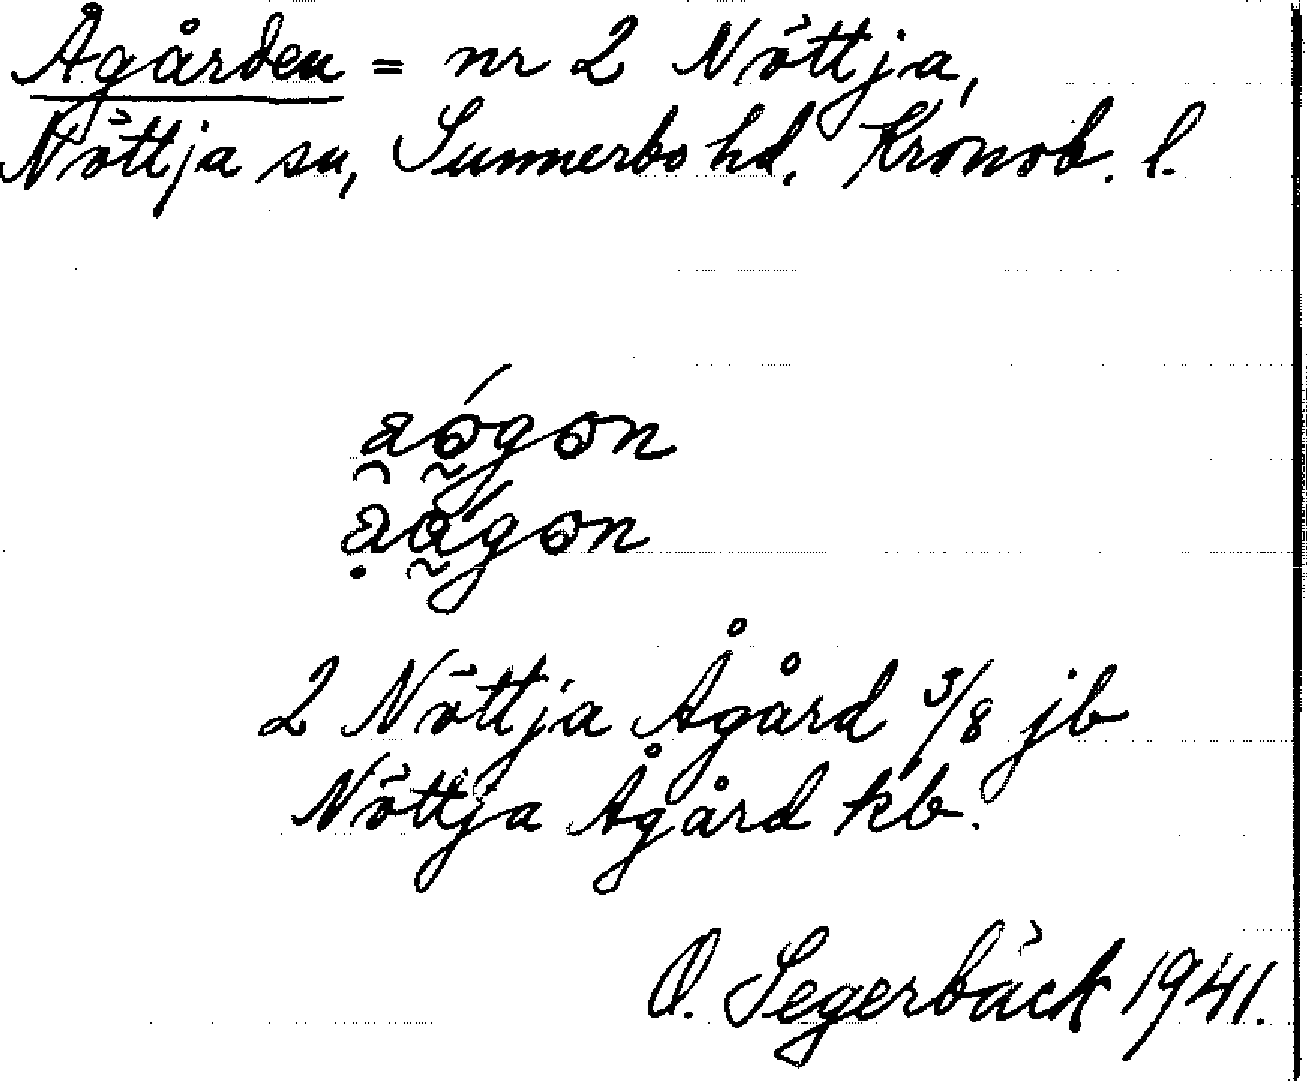 Ågården = nr 2 Nöttja,
Nöttja sn, Sunnerbo hd. Kronob. l.
2 Nöttja Ågård 3/8 jb
Nöttja Ågård kb.
O. Segerbäck 1941.